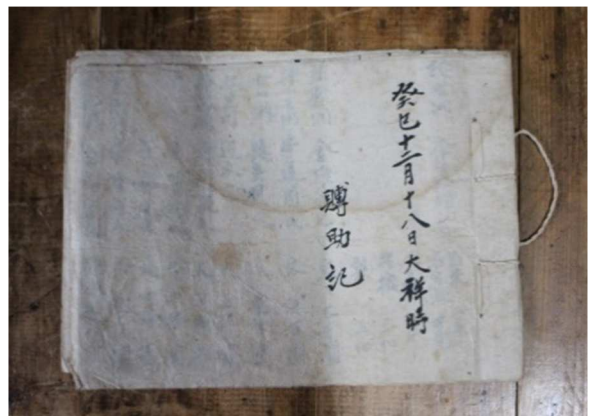 癸巳十二月十八日大祥時
賻助記